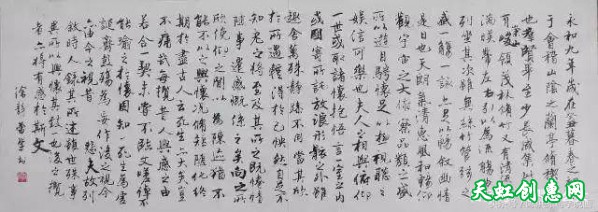 永和九年歲在癸丑暮春之初會
于會稽山陰之蘭亭脩禊
也羣賢畢至少長咸集此地
崇山
有峻領茂林脩竹又有清流激
湍暎帶左右引以為流觴曲水
列坐其次雖無絲竹管弦之
盛一觴一詠亦足以暢叙幽情
是日也天朗氣清惠風和暢仰
觀宇宙之大俯察品類之盛
所以遊目騁懷足以極視聽之
娛信可樂也夫人之相與俯仰
一世或取諸懷抱悟言一室之內
或因寄所託放浪形骸之外雖
趣舍萬殊靜躁不同當其欣
於所遇輒得於己怏然自足不
知老之將至及其所之既惓情
隨事遷感慨係之矣向之所
欣俛仰之間以為陳迹猶不
能不以之興懷況脩短隨化終
期於盡古人云死生亦大矣豈
不痛哉每攬昔人興感之由
若合一契未嘗不臨文嗟悼不
能喻之於懷固知一死生為虛
誕齊彭殤為妄作後之視今
亦由今之視昔悲夫故列
敘時人錄其所述雖世殊事
異所以興懷其致一也後之攬
者亦將有感於斯文
天虹创惠网